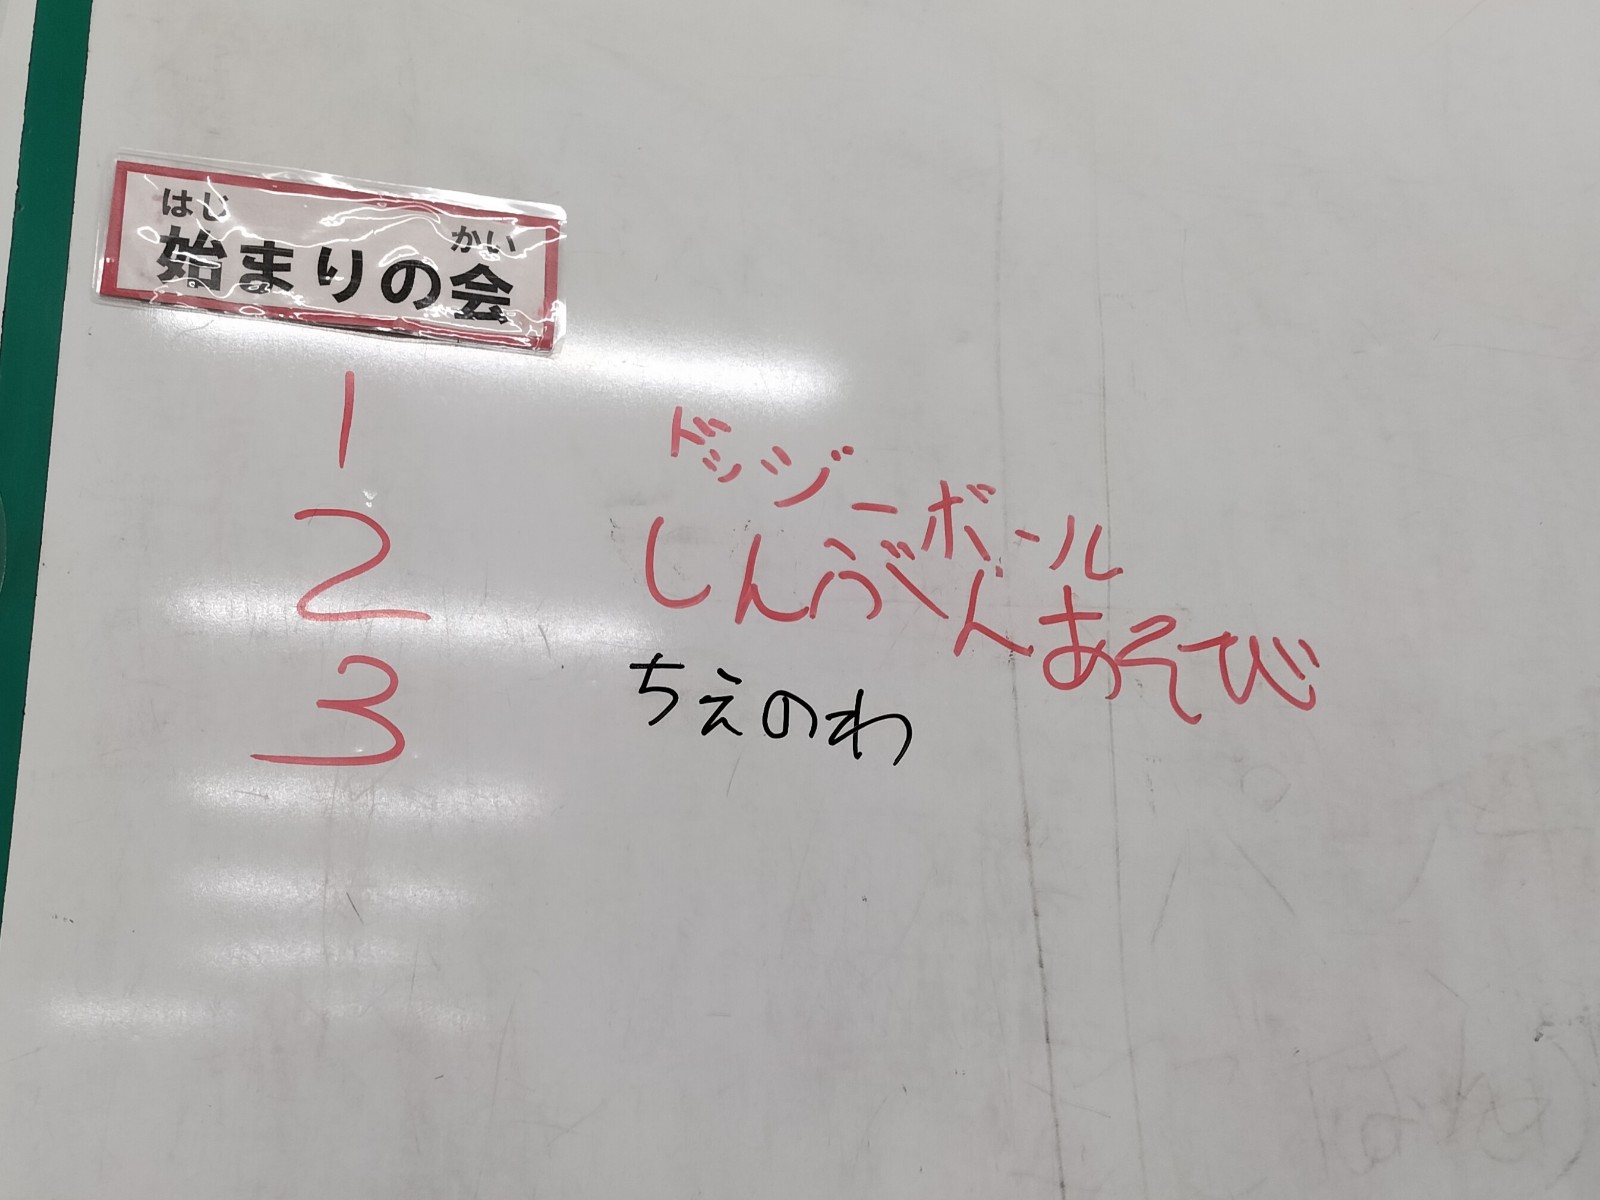 はじ かい
始まりの会
1 ドッジーボール
2 しんぶんあそび
3 ちえのわ